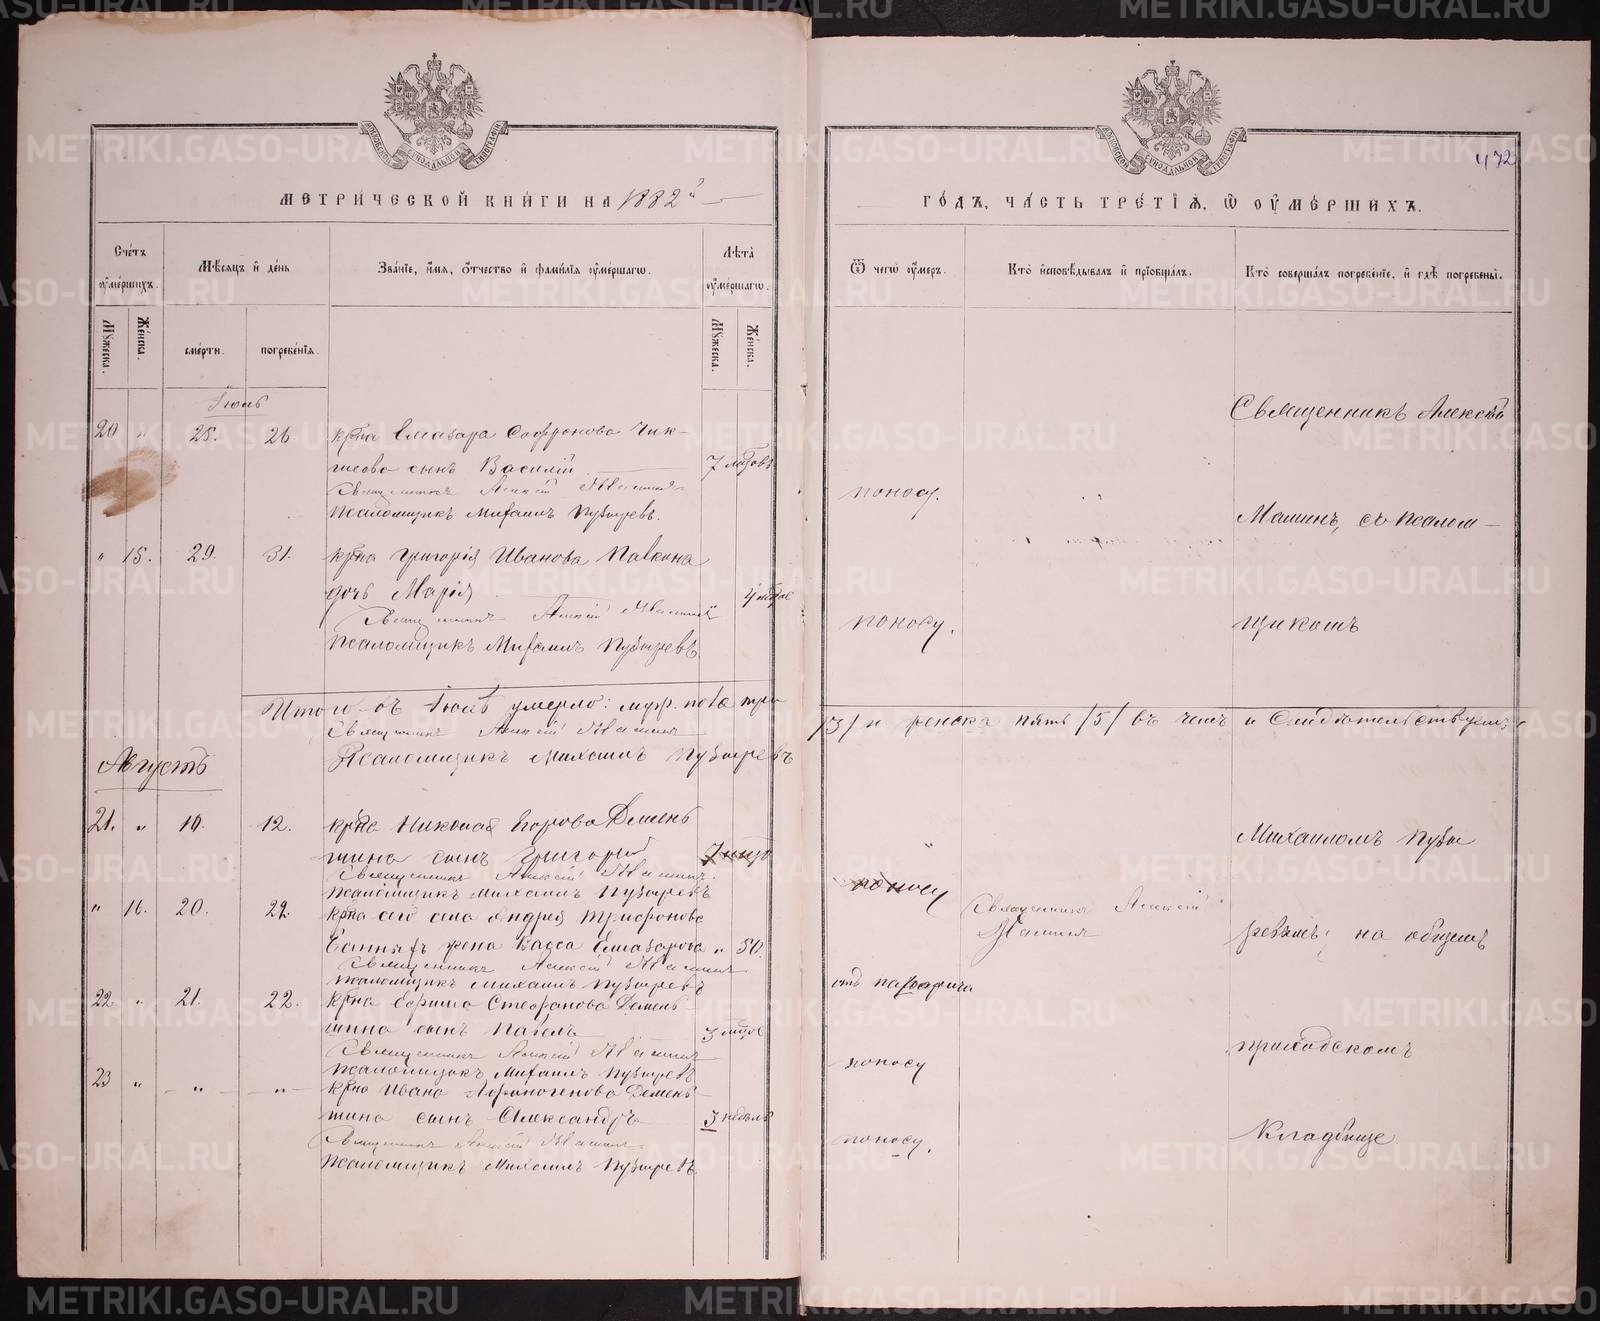 МЕТРИЧЕСКОЙ КНИГИ НА 1882й
Счетъ умершихъ.
Мужеска.
Женска.
Мѣсяцъ и день
смерти.
погребенія.
Званіе, имя, отчество и фамилія умершаго.
Лѣта умершаго.
Мужеска.
Женска.
Іюль
20 " 25. 26 крна Елизара Софронова Чик-
сынъ Василій 7
Священникъ Алексій Машинъ
Псаломщикъ Михаилъ Пузыревъ.
" 15. 29. 31. крна Григорія Иванова
дочь Марія 4
Священникъ Алексій Машинъ
Псаломщикъ Михаилъ Пузыревъ
Итого въ Іюлѣ умерло: муж. пола три
Священникъ Алексій Машинъ
Августъ
Псаломщикъ Михаилъ Пузыревъ
21. " 10. 12. крна Николая Егорова Демень
шина сынъ Григорій 7
Священникъ Алексій Машинъ
Псаломщикъ Михаилъ Пузыревъ
" 16. 20. 22. крна сего села Андрея Трифонова
жена Васса Елиазарова " 50.
Священникъ Алексій Машинъ
Псаломщикъ Михаилъ Пузыревъ
22 " 21. 22. крна Стефанова Демень
шина сынъ Павелъ 3
Священникъ Алексій Машинъ
Псаломщикъ Михаилъ Пузыревъ
23 " - " - " - крна Ивана Афиногенова Демень
шина сынъ Александръ 3 недѣль
Священникъ Алексій Машинъ
Псаломщикъ Михаилъ Пузыревъ
472
ГОДЪ, ЧАСТЬ ТРЕТІЯ, Ѡ ОУМЕРШИХЪ.
Ѿ чегѡ умеръ.
Кто исповѣдывалъ и пріобщалъ.
Кто совершалъ погребеніе, и гдѣ погребены.
Священникъ Алексѣй
поносу.
Машинъ, съ псалом-
поносу.
щикомъ
/3/ и женска пять /5/ въ чемъ и свидѣтельствуемъ
Михаиломъ Пузы
поносу
Священникъ Алексій
Машинъ
ревымъ; на общемъ
отъ
приходскомъ
поносу
кладбище
поносу.
METRIKI.GASO-URAL.RU